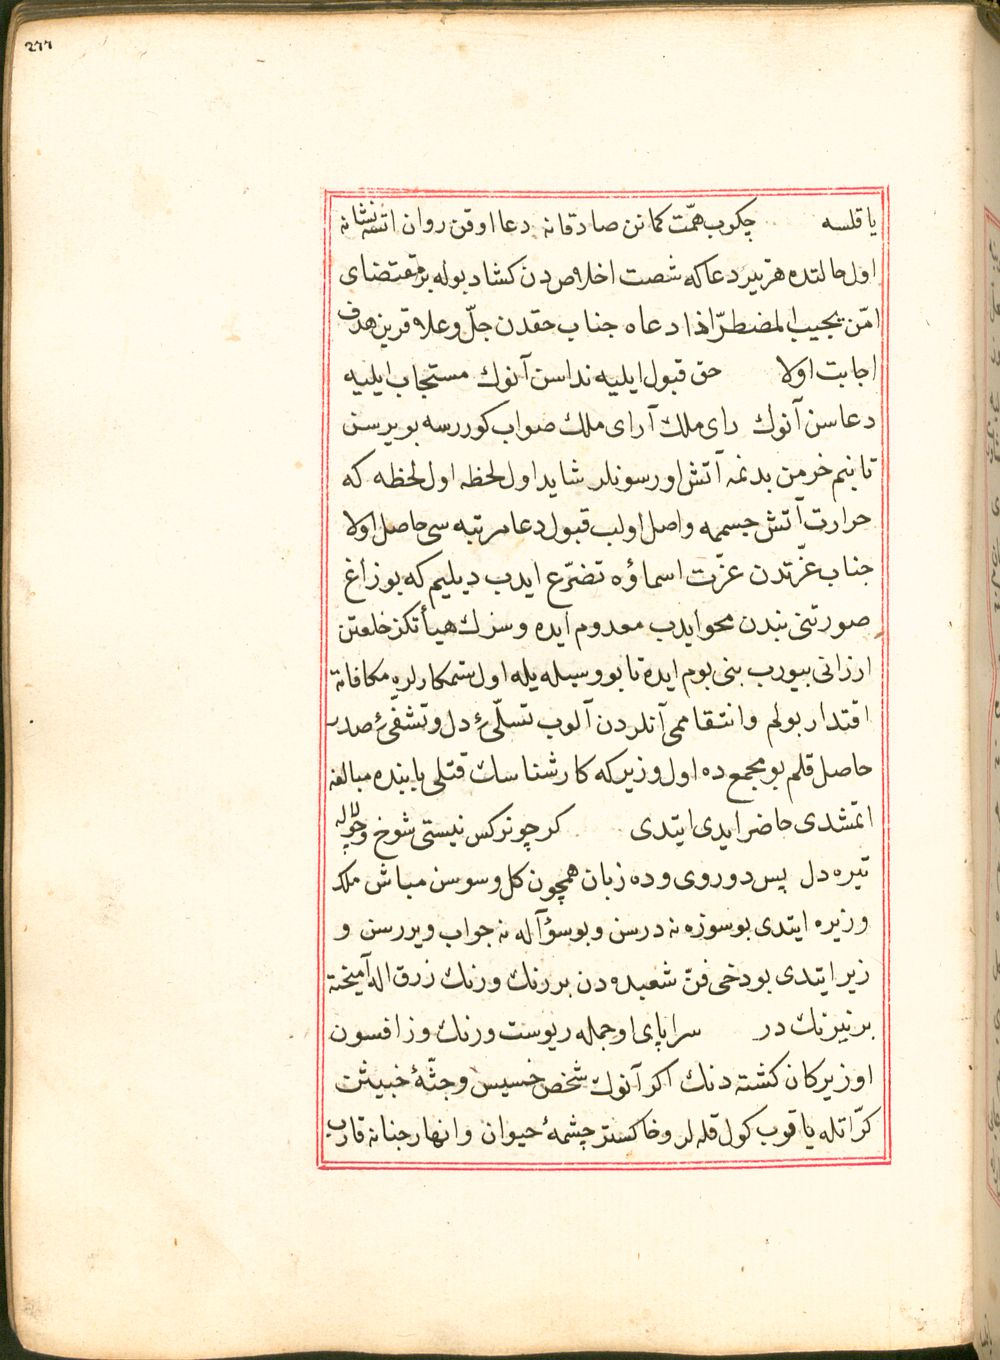 ٢٦٦
یا قلسه چکوب همّت کمانن صادقانه دعا اوقن روان اتسه نشانه
اول حالتده هر تیر دعا که شصت اخلاص دن کشاد بوله بر مقتضای
امّن یجیب المضطرّ اذا دعاه جناب حقدن جلّ وعلا قرین هدف
اجابت اولا حق قبول ایلیه نداسن آنوڭ مستجاب ایلیه
دعاسن آنوڭ رای ملك آرای ملك صواب کوررسه بویرسن
تا بنم خرمن بدنمه آتش اورسونلر شاید اول لحظه اول لحظه که
حرارت آتش جسممه واصل اولب قبول دعا مرتبه سی حاصل اولا
جناب عزّتدن عزّت اسماؤه تضرّع ایدب دیلیم که بو زاغ
صورتنی بندن محو ایدب معدوم ایده و سزڭ هیأتکز خلعتن
ارزانی بیورب بنی بوم ایده تا بو وسیله یله اول ستمکارلره مکافاته
اقتدار بولم و انتقاممی آنلردن آلوب تسلّئ دل و تشفّئ صدر
حاصل قلم بو مجمع ده اول وزیر که کارشناسڭ قتلی بابنده مبالغه
اتمشدی حاضر ایدی ایتدی کر چو نرکس نیستی شوخ و چو لاله
تیره دل پس دوروی و ده زبان همچون کل و سوسن مباش ملك
وزیره ایتدی بو سوزه نه درسن و بو سؤآله نه جواب ویررسن و
زیر ایتدی بو دخی فنّ شعبده دن بر رنك و رنك زرق اله آمیخته
بر نیرنك در سراپای او جمله ریوست و رنك وز افسون
او زیرکان کشته دنك اکر آنوڭ شخص خسیس و جثّهٔ خبیثن
کرّاتله یاقوب کول قله لر و خاکستر چشمهٔ حیوان و انهار جنانه قارب